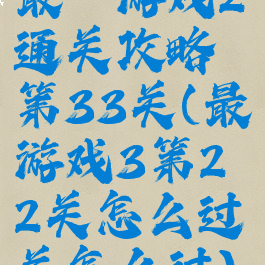 最 游戏2
通关攻略
第33关(最
游戏3第2
2关怎么过
关怎么过)